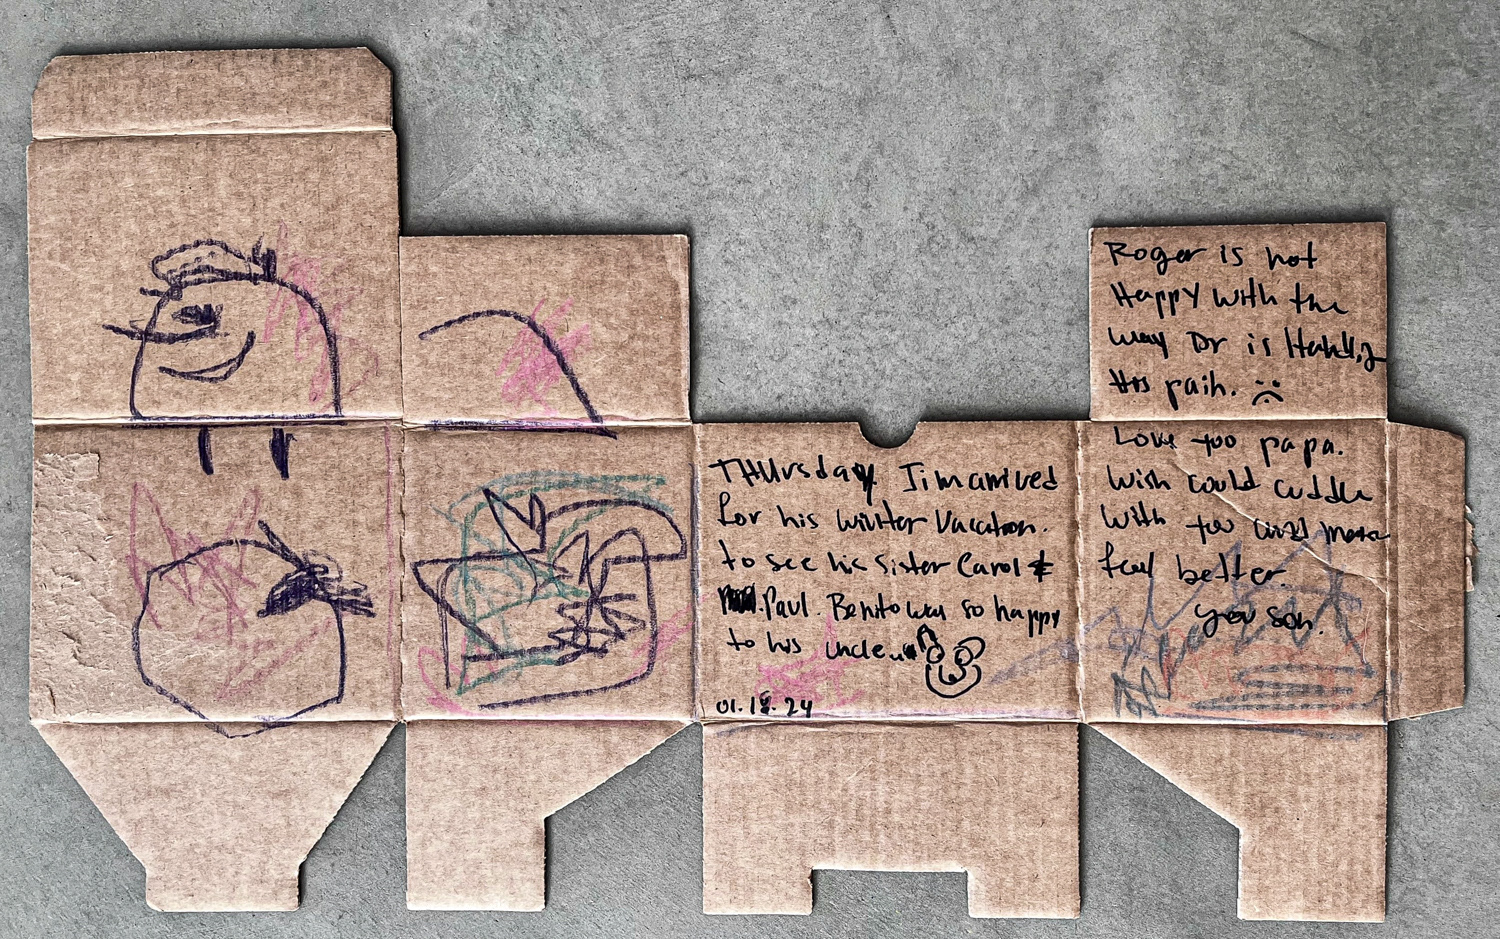 THUrsday. Jim arrived
for his winter vacation.
to see his sister Carol &
Paul. Benito was so happy
to his uncle...
01.18.24
Roger is not
Happy with the
way Dr is Handling
His pain. :(
Love too papa.
Wish could cuddle
with too and make
feel better.
your son.